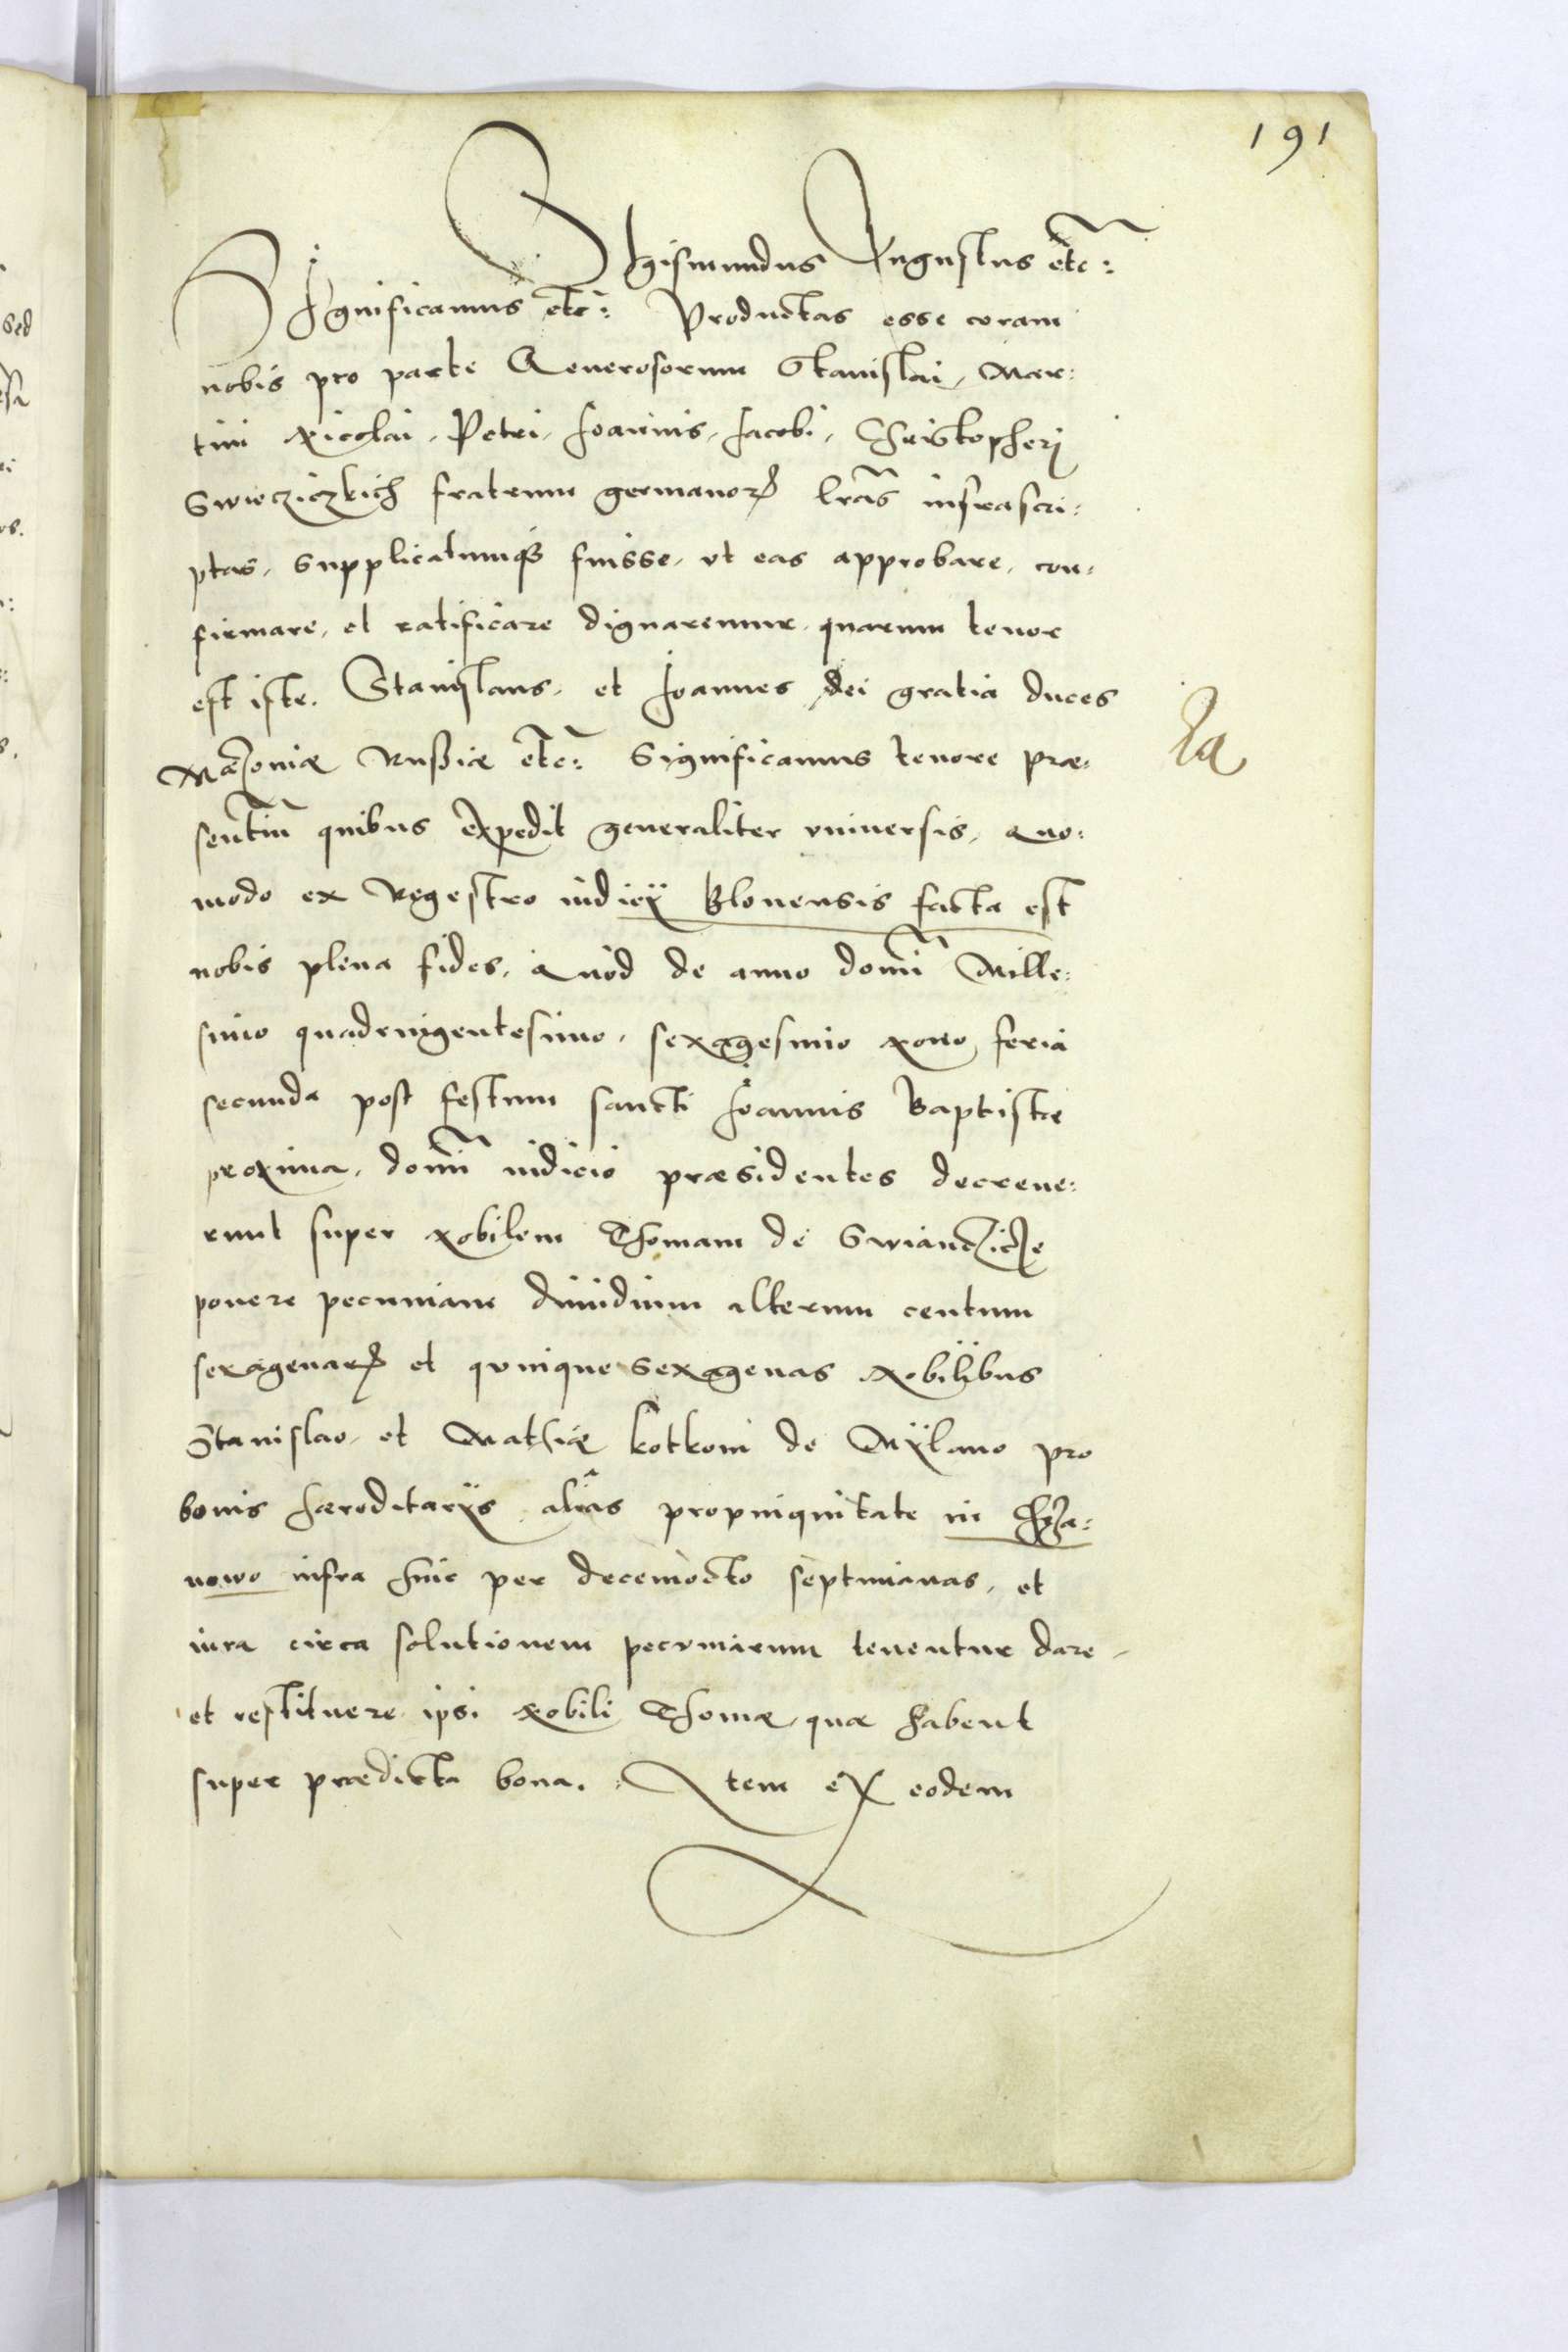 191
Sigismundus Augustus etc:
Significamus etc: Productas esse coram
nobis pro parte Generosorum Stanislai, Mar:
tini Nicolai, Petri, Joannis, Jacobi, Christopheri
Swiecziczkich fratrum germanorꝝ l̃ras infrascri:
ptas, supplicatumqꝫ fuisse, ut eas approbare, con:
firmare, et ratificare dignaremur, quarum tenor
est iste. Stanislaus, et Joannes dei gratia duces
Mazoviæ Russiæ etc: Significamus tenore præ:
sentiũ quibus expedit generaliter universis, Quo:
modo ex Regestro iudicÿ Blonensis facta est
nobis plena fides, Quod de anno domĩ Mille:
simo quadringentesimo, sexagesimo Nono feria
secunda post festum sancti Joannis Baptistæ
proxima, domĩ iudicio præsidentes decreve:
runt super Nobilem Thomam de Swianczicze
ponere pecuniam dimidium alterum centum
sexagenarꝝ et quinque sexagenas Nobilibus
Stanislao, et Mathiæ Kotkom de Mÿlano pro
bonis hæreditarÿs alias propinquitate in Chrza:
nowo infra hinc per decemocto septimanas, et
iura circa solutionem pecuniarum tenentur dare,
et restituere ipsi Nobili Thomæ, quæ habent
super prædicta bona. Item ex eodem